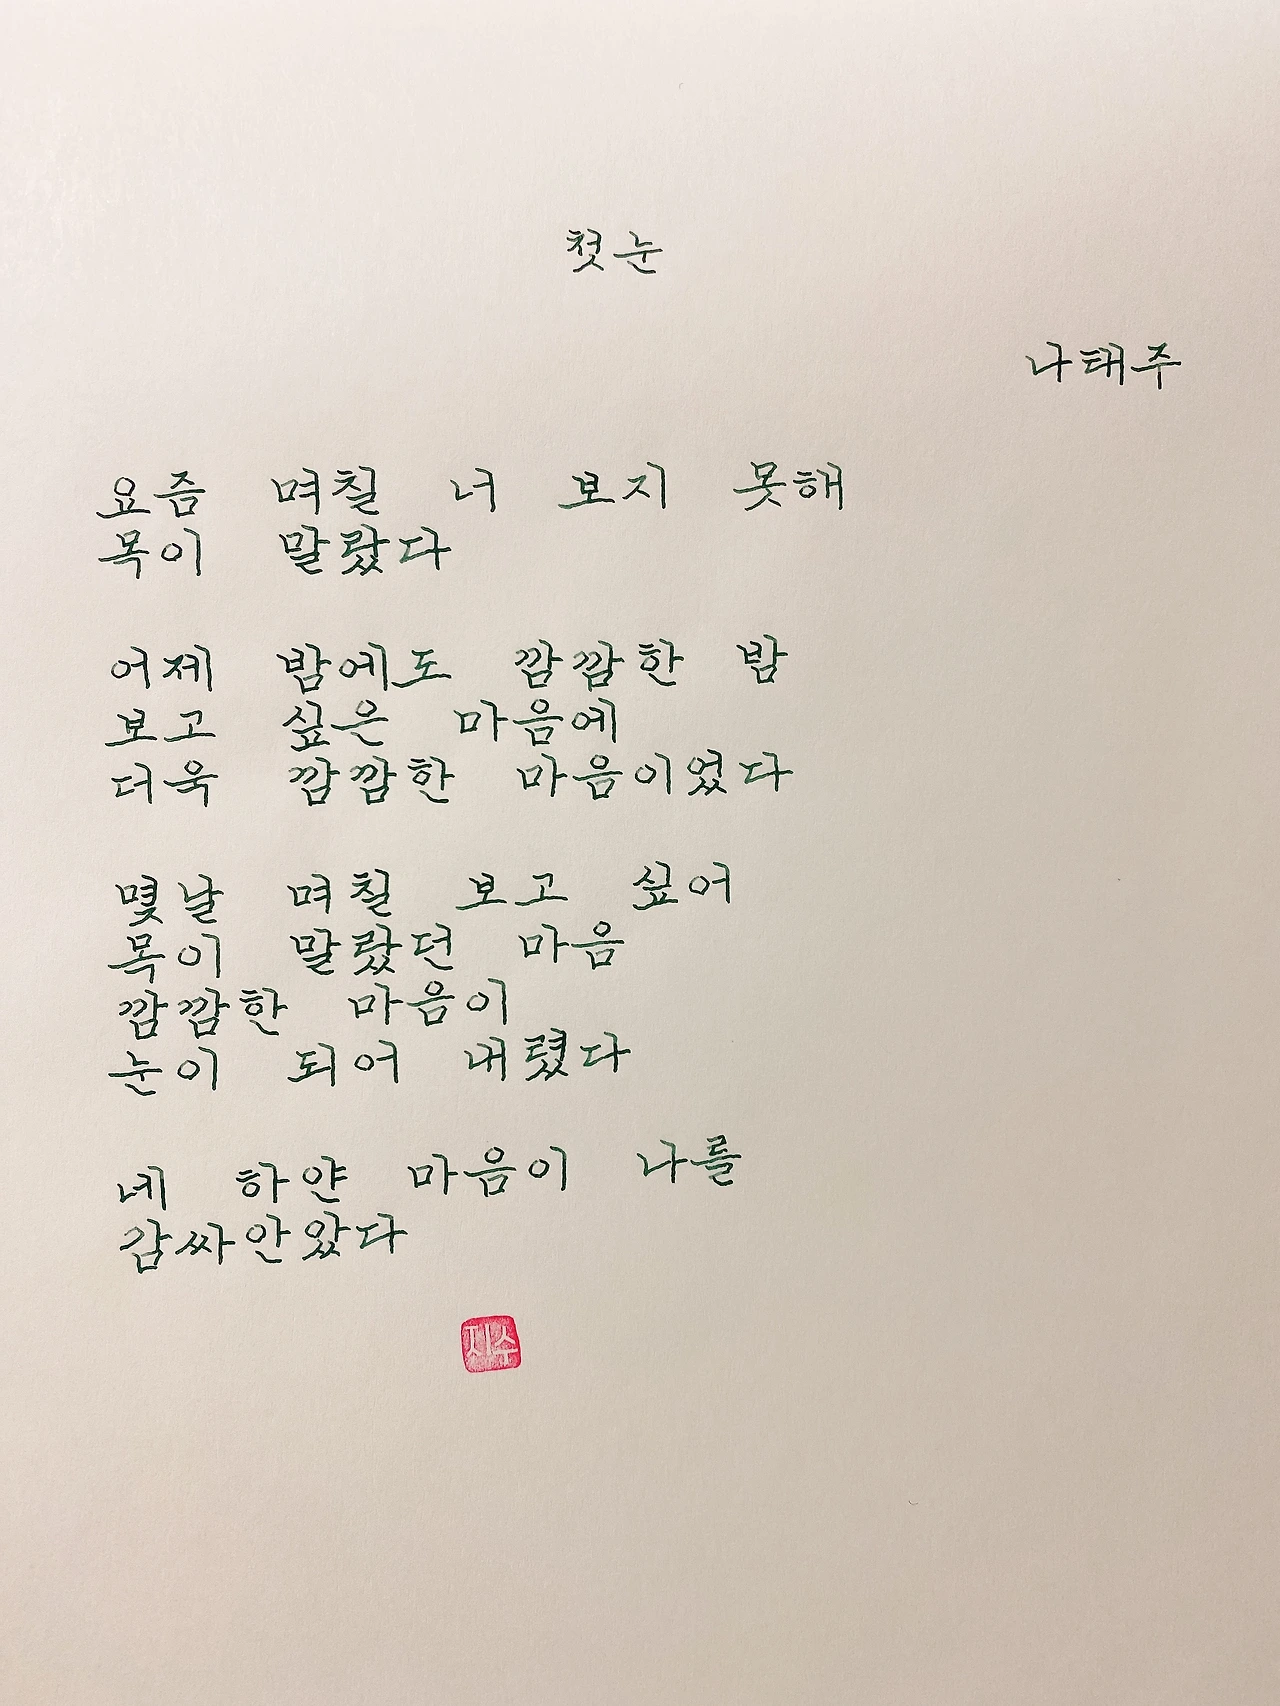 첫눈
나태주
요즘 며칠 너 보지 못해
목이 말랐다
어제 밤에도 깜깜한 밤
보고 싶은 마음에
더욱 깜깜한 마음이었다
몇날 며칠 보고 싶어
목이 말랐던 마음
깜깜한 마음이
눈이 되어 내렸다
네 하얀 마음이 나를
감싸안았다
지수